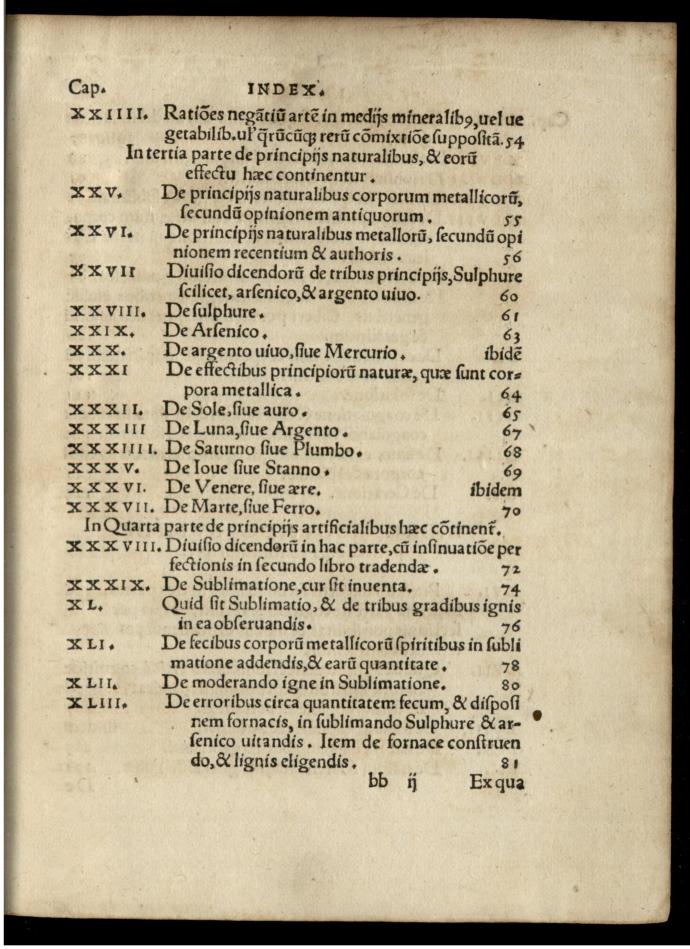 Cap. INDEX.
XXIIII. Ratiões negātiū artē in medijs mineralibꝰ, uel ue
getabilib. ulꝰ q̄rūcūqꝫ rerū cõmixtiõe suppositā. 54
In tertia parte de principijs naturalibus, & eorū
effectu hæc continentur.
XXV. De principijs naturalibus corporum metallicorū,
secundū opinionem antiquorum. 55
XXVI. De principijs naturalibus metallorū, secundū opi
nionem recentium & authoris. 56
XXVII Diuisio dicendorū de tribus principijs, Sulphure
scilicet, arsenico, & argento uiuo. 60
XXVIII. De sulphure. 61
XXIX. De Arsenico. 63
XXX. De argento uiuo, siue Mercurio. ibidē
XXXI De effectibus principiorū naturæ, quæ sunt cor⸗
pora metallica. 64
XXXII. De Sole, siue auro. 65
XXXIII De Luna, siue Argento. 67
XXXIIII. De Saturno siue Plumbo. 68
XXXV. De Ioue siue Stanno. 69
XXXVI. De Venere, siue ære. ibidem
XXXVII. De Marte, siue Ferro. 70
In Quarta parte de principijs artificialibus hæc cõtinent᷑.
XXXVIII. Diuisio dicendorū in hac parte, cū insinuatiõe per
fectionis in secundo libro tradendæ. 72
XXXIX. De Sublimatione, cur sit inuenta. 74
XL. Quid sit Sublimatio, & de tribus gradibus ignis
in ea obseruandis. 76
XLI. De fecibus corporū metallicorū spiritibus in subli
matione addendis, & earū quantitate. 78
XLII. De moderando igne in Sublimatione. 80
XLIII. De erroribus circa quantitatem fecum, & disposi
nem fornacis, in sublimando Sulphure & ar-
senico uitandis. Item de fornace construen
do, & lignis eligendis. 81
bb ij Ex qua